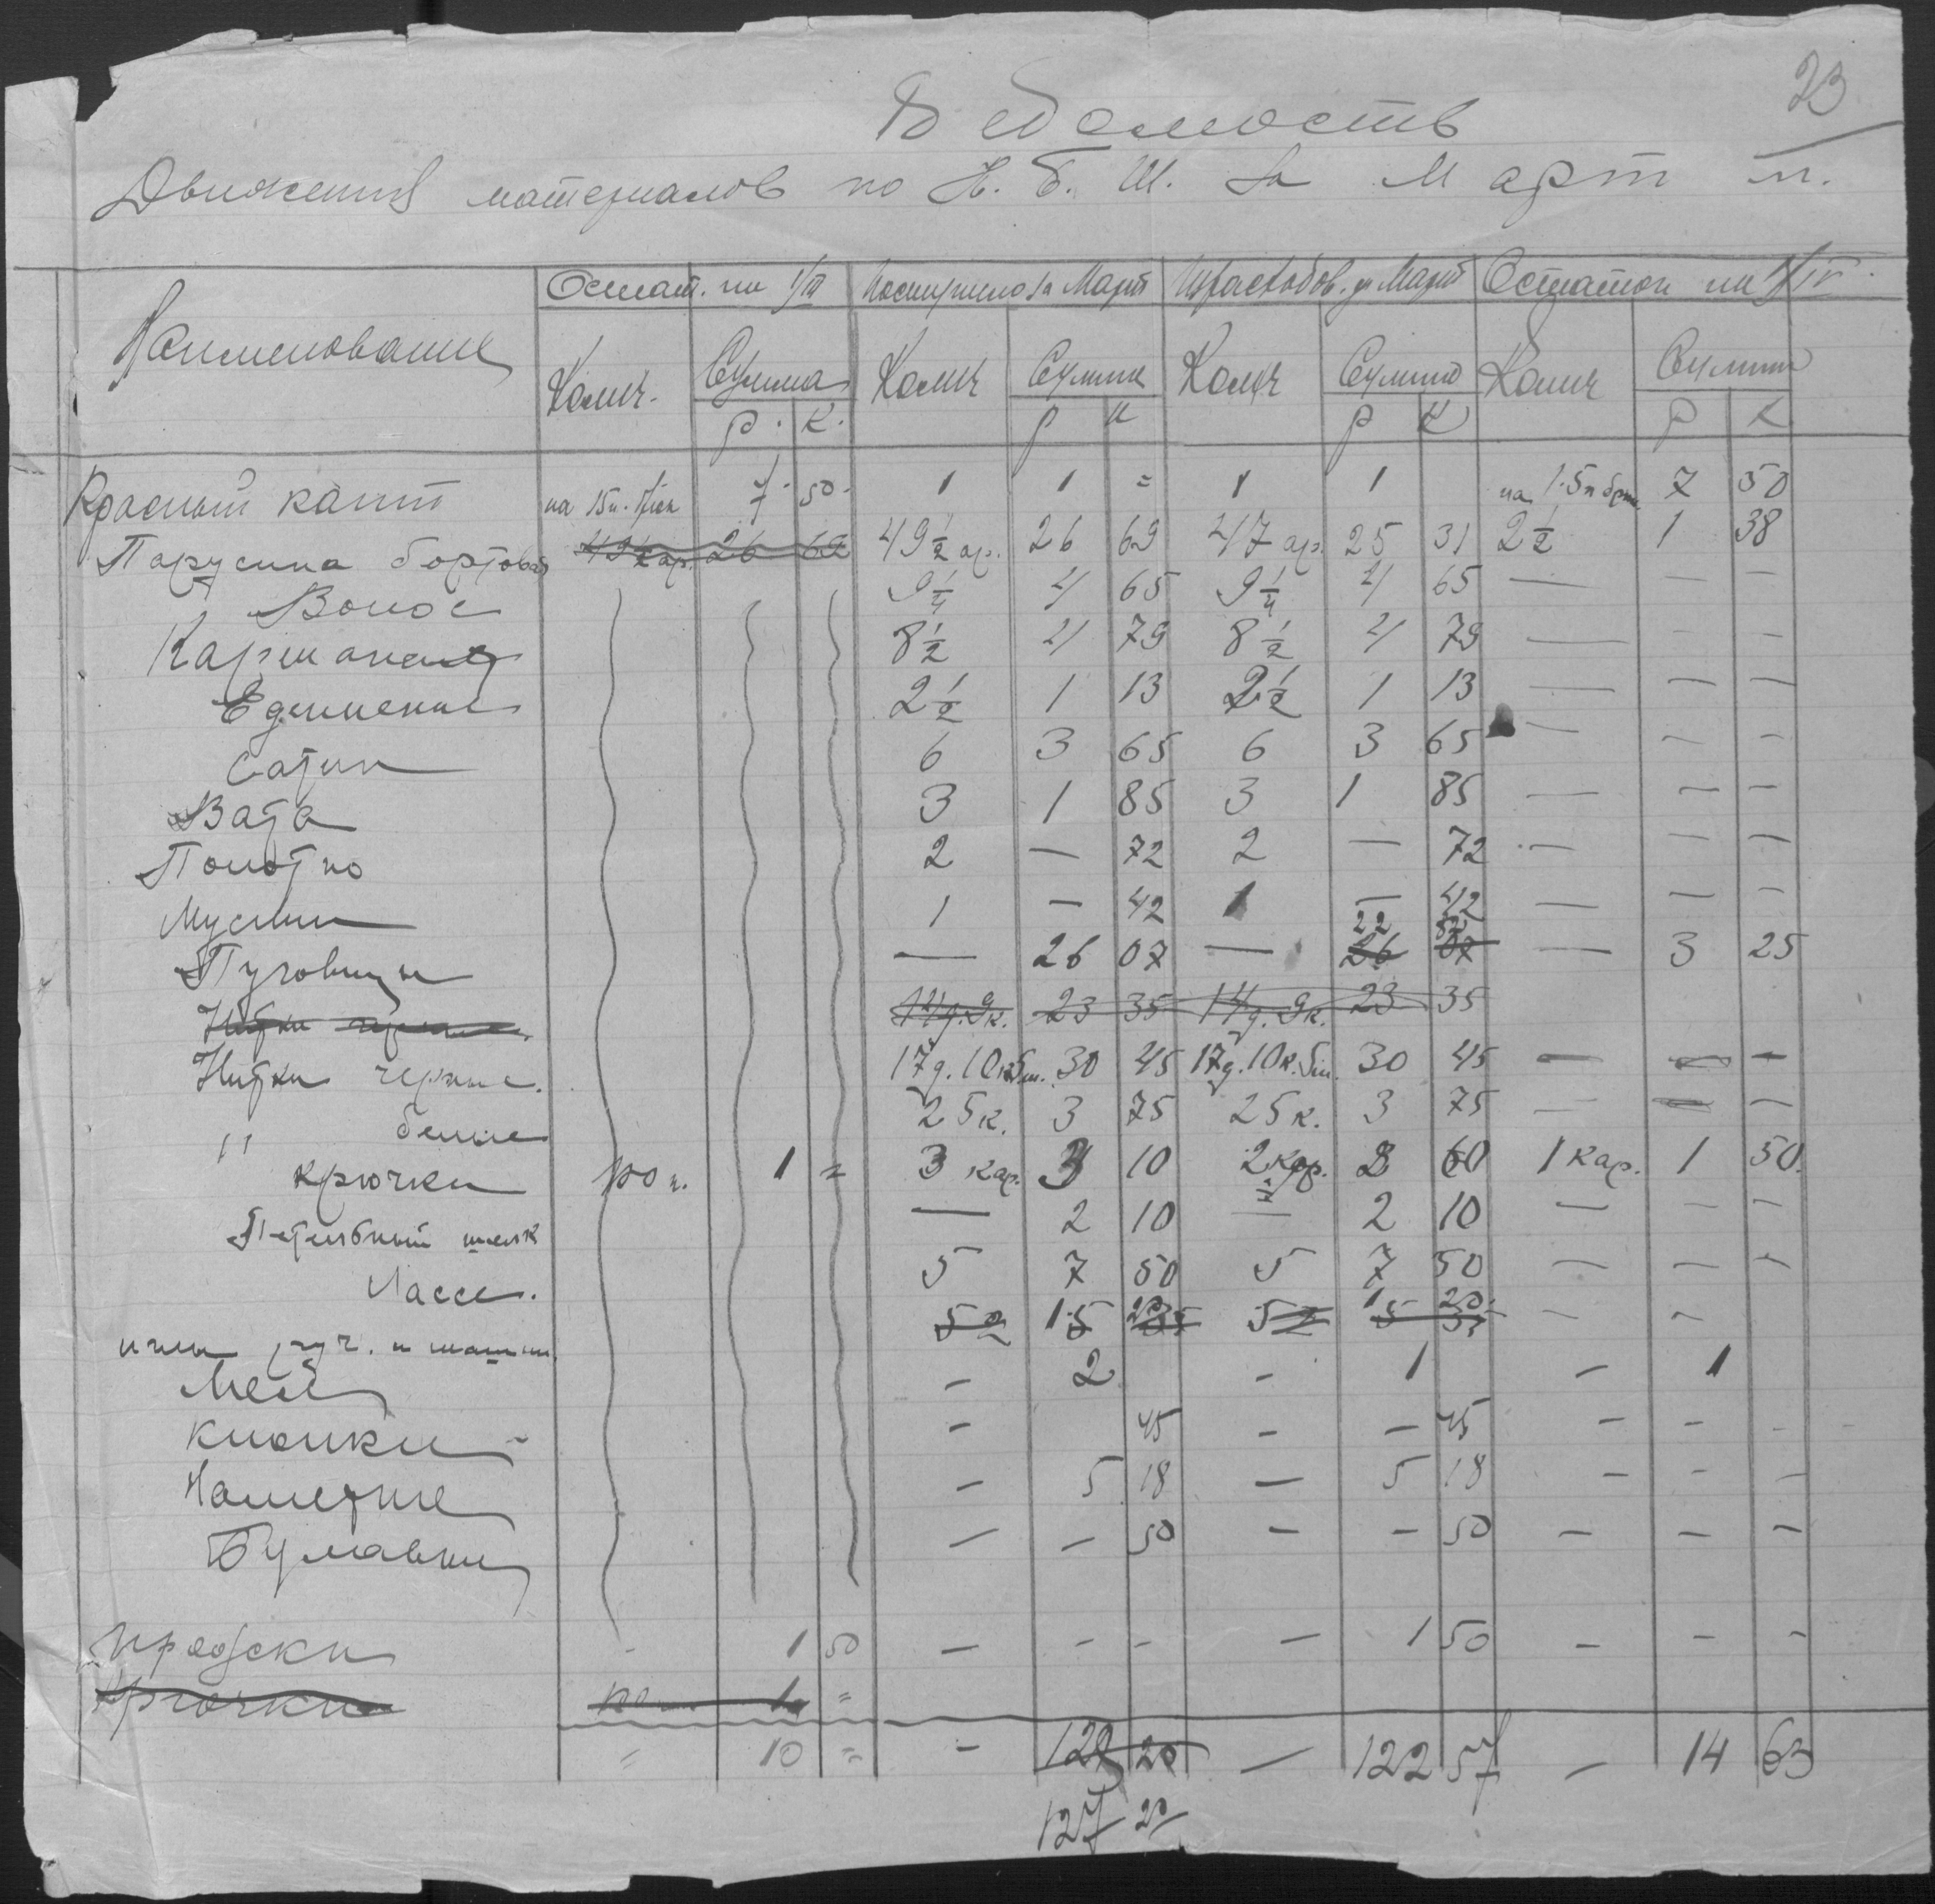 23
Ведомость
Движения материалов по Н. Б. Ш. за Март м.
Наименование | Остат. на 1/III | Поступило за Март | Израсходов. за Март | Остаток на 1/IV
Колич. | Сумма | Колич | Сумма | Колич | Сумма | Колич | Сумма
р. | к. | р | к | р | к | р | к
Красный кант | на 15 п. | 7 | 50 | 1 | 1 | = | 1 | 1 | на 15 п брюк | 7 | 50
Парусина бортовая | 49 1/2 ар. | 26 | 69 | 49 1/2 ар. | 26 | 69 | 47 ар. | 25 | 31 | 2 1/2 | 1 | 38
Волос | 9 1/4 | 4 | 65 | 9 1/4 | 4 | 65 | — | — | —
Карманы | 8 1/2 | 4 | 79 | 8 1/2 | 4 | 79 | — | — | —
2 1/2 | 1 | 13 | 2 1/2 | 1 | 13 | — | — | —
Сатин | 6 | 3 | 65 | 6 | 3 | 65 | — | — | —
Вата | 3 | 1 | 85 | 3 | 1 | 85 | — | — | —
Полотно | 2 | — | 72 | 2 | — | 72 | — | — | —
Муслин | 1 | — | 42 | 1 | — | 42 | — | — | —
Пуговицы | — | 26 | 07 | — | 26 22 | 07 82 | — | 3 | 25
Нитки черные | 14 д. 9 к. | 23 | 35 | 14 д. 9 к. | 23 | 35
Нитки черные. | 17 д. 10 к. 5 ш. | 30 | 45 | 17 д. 10 к. 5 ш. | 30 | 45 | — | — | —
" белые | 25 к. | 3 | 75 | 25 к. | 3 | 75 | — | — | —
Крючки | 100 п. | 1 | = | 3 кар. | 3 | 10 | 2 кар. | 2 | 60 | 1 кар. | 1 | 50.
Петельный шелк | — | 2 | 10 | — | 2 | 10 | — | — | —
Лассе. | 5 | 7 | 50 | 5 | 7 | 50 | — | — | —
иглы руч. и машин. | 52 | 15 1 | 35 20 | 52 | 15 1 | 35 20 | — | —
Мел | — | 2 | — | 1 | — | 1
Кнопки | — | 45 | — | — | 45 | — | — | —
— | 5 | 18 | — | 5 | 18 | — | — | —
Булавки | — | — | 50 | — | — | 50 | — | — | —
- | 1 | 50 | — | - | - | — | 1 | 50 | — | — | —
Крючки | 100 | 1 | =
= | 10 | = | — | 129 | 20 | — | 122 | 57 | — | 14 | 63
127 | 20